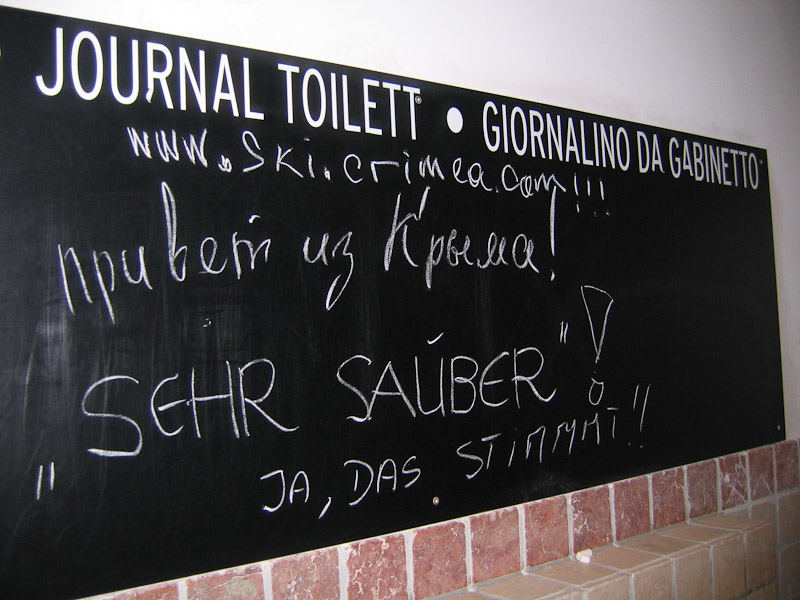 JOURNAL TOILETT • GIORNALINO DA GABINETTO
www.ski.crimea.com!!!
привет из Крыма!
„SEHR SAÚBER"!
JA, DAS STIMMT!!